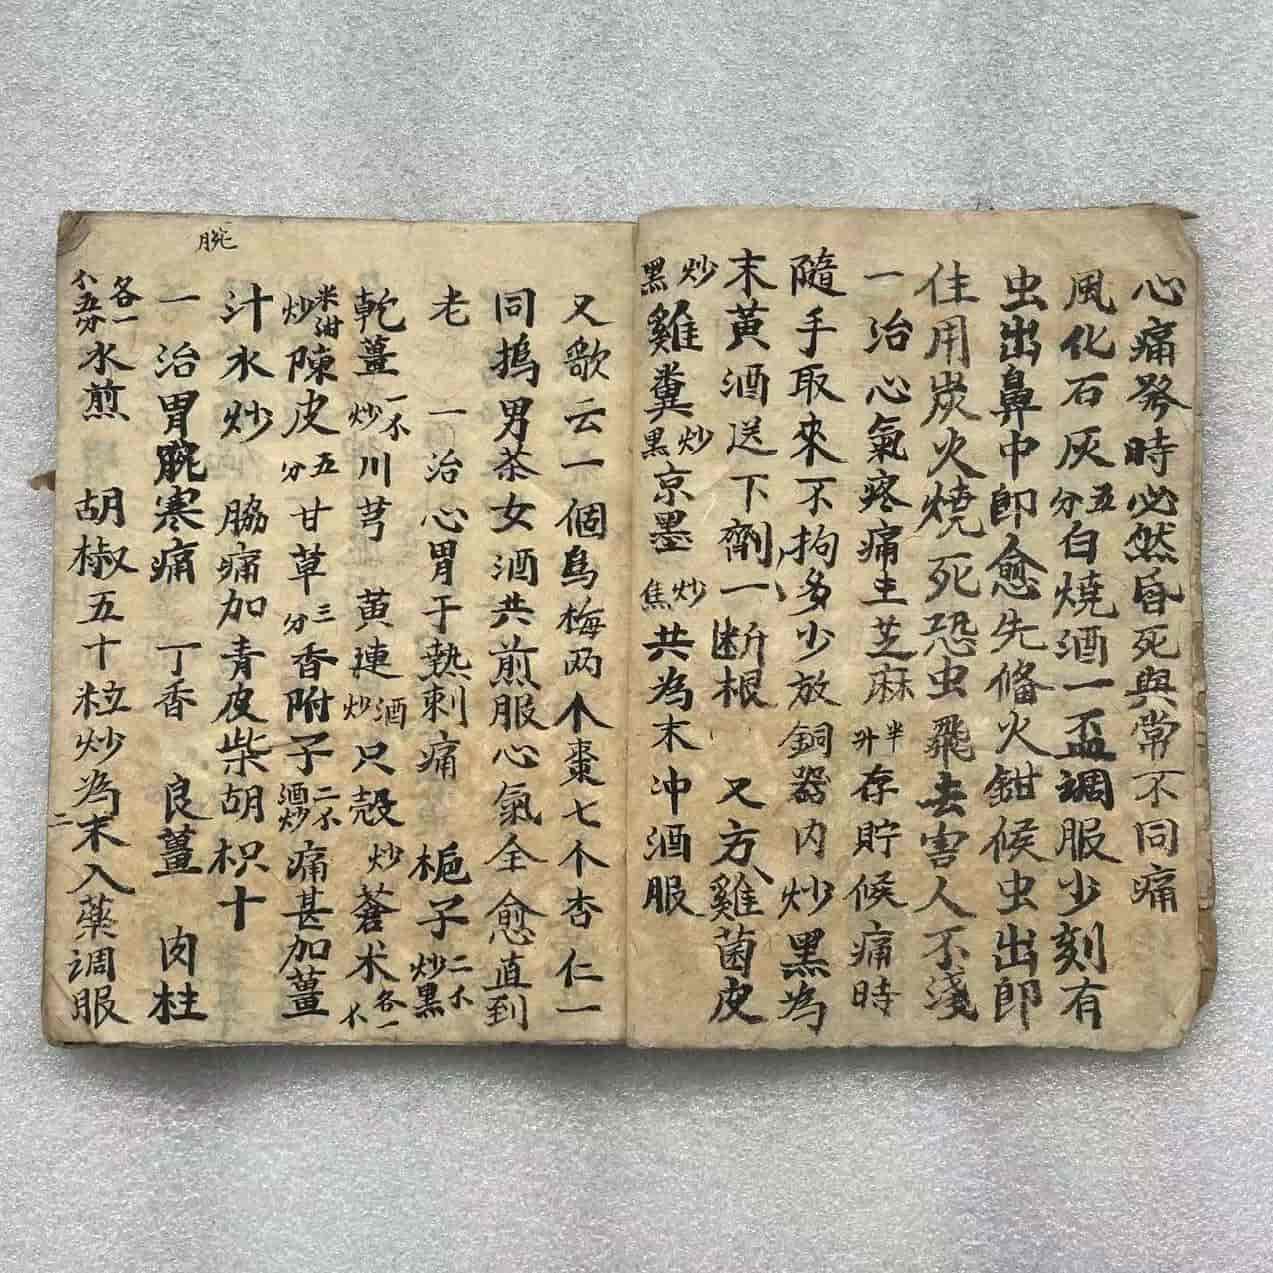 心痛發時必然昏死與常不同痛
風化石灰五分白燒酒一盃調服少刻有
虫出鼻中即愈先俻火鉗候虫出即
住用炭火燒死恐虫飛去害人不淺
一治心氣疼痛主芝麻半升存貯候痛時
隨手取來不拘多少放銅器内炒黑為
末黃酒送下劑一断根 又方雞菌皮
炒黑雞糞炒黑京墨炒焦共為末冲酒服
又歌云一個烏梅两个棗七个杏仁一
同搗男茶女酒共煎服心氣全愈直到
老 一治心胃于熱刺痛 梔子二不炒黑
乾薑一不炒川芎 黄連酒炒只殻炒蒼术各一不
米泔炒陳皮五分甘草三分香附子二不酒炒痛甚加薑
汁水炒 脇痛加青皮柴胡枳十
脘
一治胃脘寒痛 丁香 良薑 肉桂
各一不五分水煎 胡椒五十粒炒為末入藥調服
二